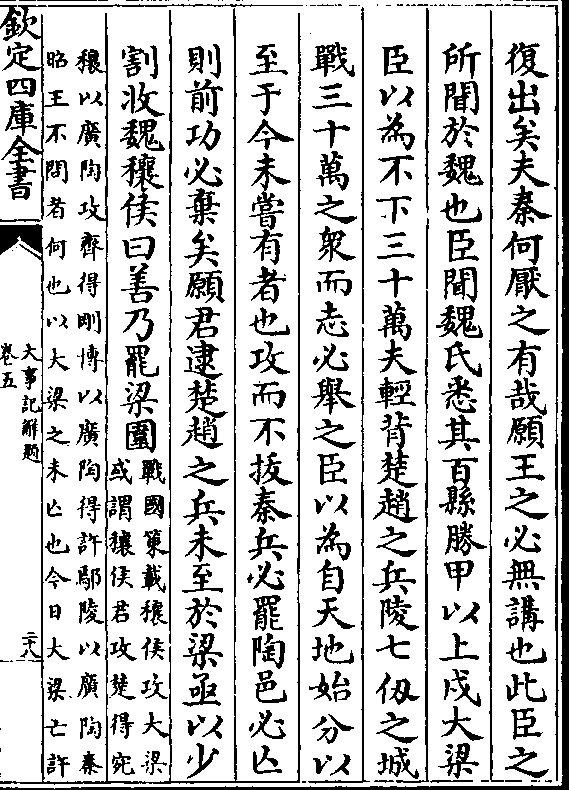 復出矣夫秦何厭之有哉願王之必無講也此臣之
所聞於魏也臣聞魏氏悉其百縣勝甲以上戍大梁
臣以為不下三十萬夫輕背楚趙之兵陵七仭之城
戰三十萬之衆而志必舉之臣以為自天地始分以
至于今未嘗有者也攻而不拔秦兵必罷陶邑必亡
則前功必棄矣願君逮楚趙之兵未至於梁亟以少
割收魏穰侯曰善乃罷梁圍
戰國策載穰侯攻大梁
或謂穰侯君攻楚得宛
穰以廣陶攻齊得剛博以廣陶得許鄢陵以廣陶秦
昭王不問者何也以大梁之未亡也今日大梁亡許
欽定四庫全書
大事記解題
卷五
二十八